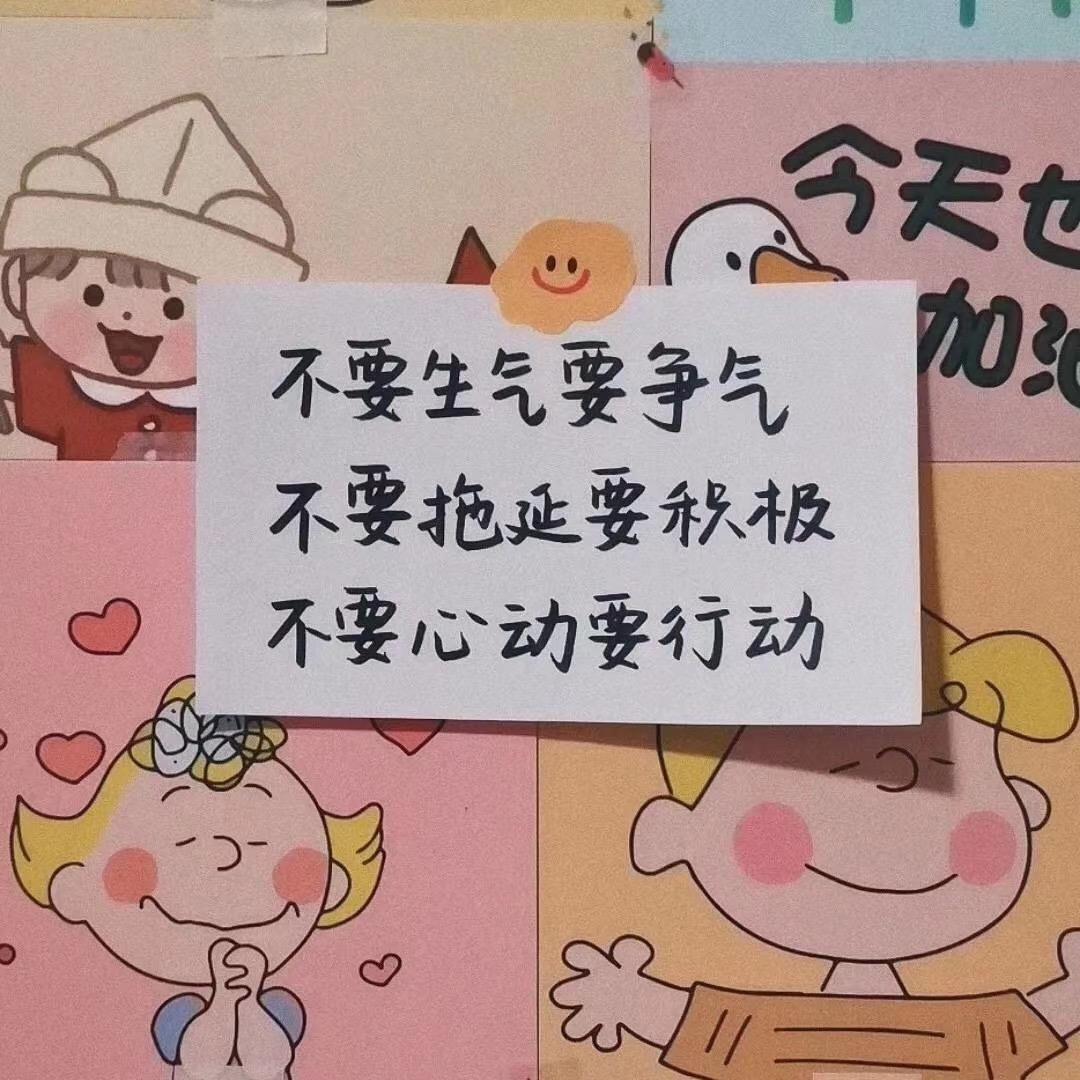 今天也
加油
不要生气要争气
不要拖延要积极
不要心动要行动